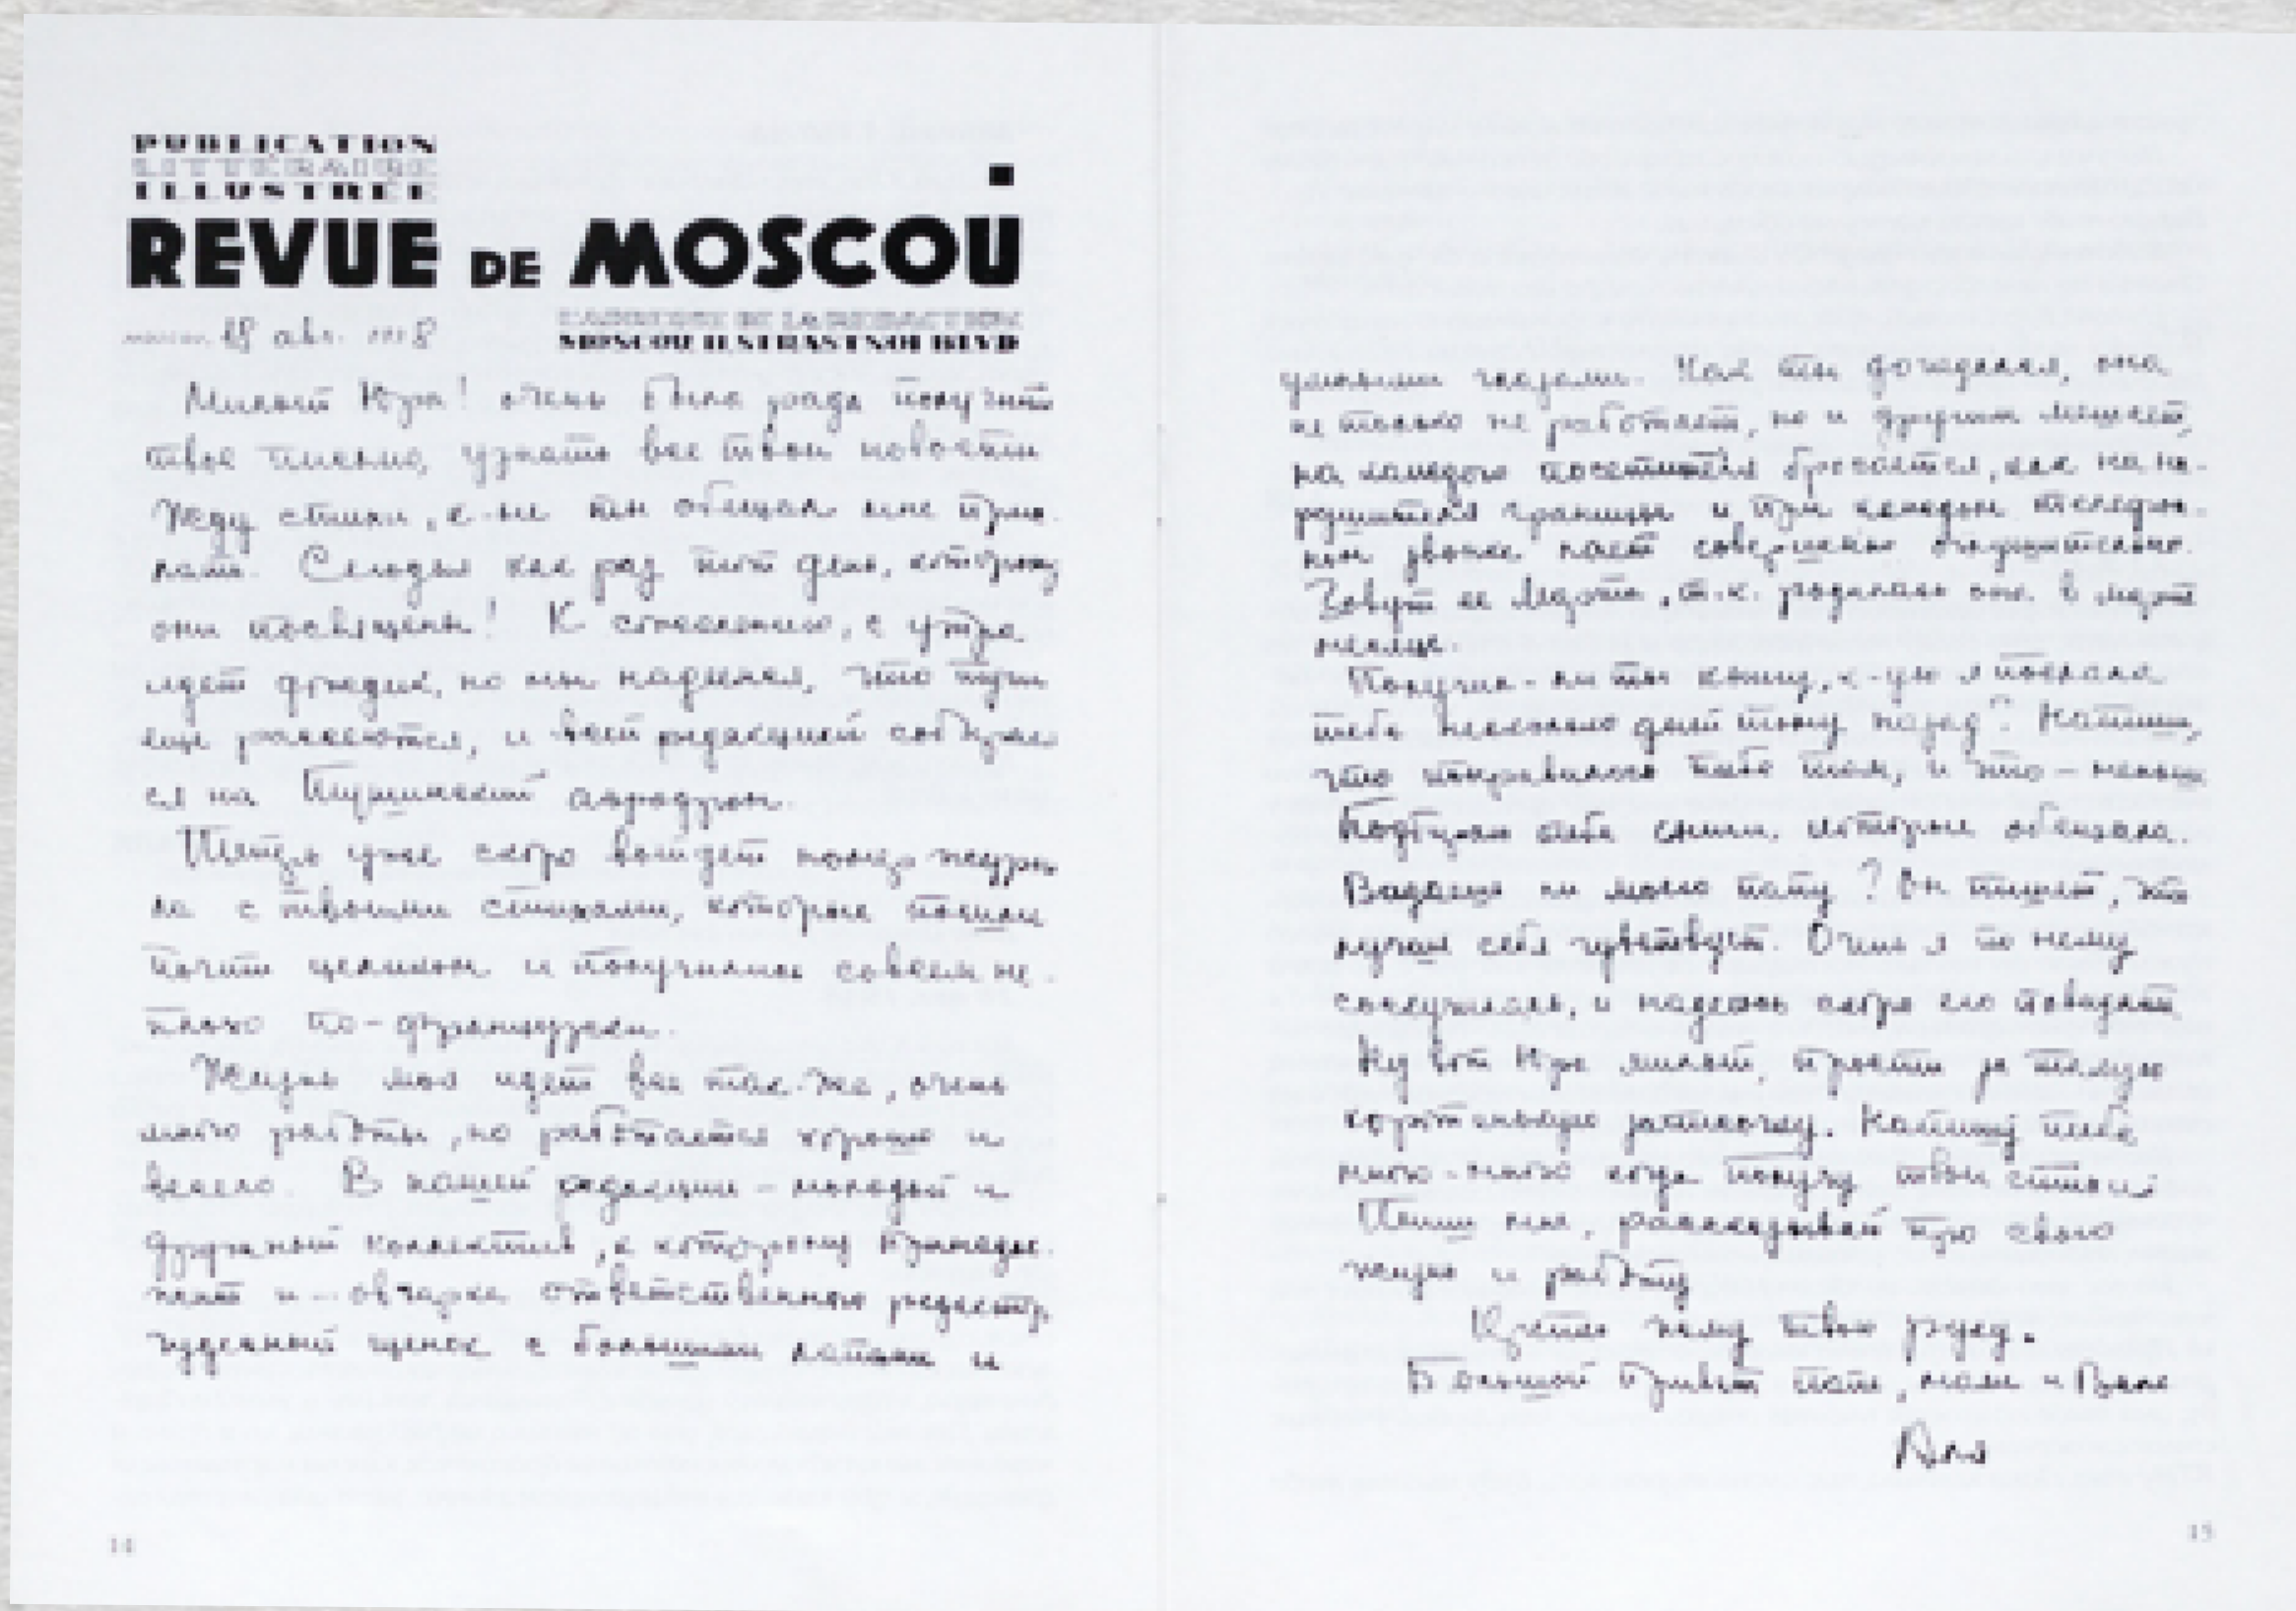 PUBLICATION
LITTÉRAIRE
ILLUSTRÉE
REVUE DE MOSCOU
18 авг.
MOSCOU 11 STRASTNOI BLVD
Милый Юра! очень была рада получить
твое письмо, узнать все твои новости
Жду стихи, к-ые ты обещал мне прис-
лать. Сегодня как раз тот день, которому
они посвящены! К сожалению, с утра
идет дождик, но мы надеемся, что тучи
еще рассеются, и всей редакцией собираем
ся на Тушинский аэродром.
Теперь уже скоро выйдет номер журна
ла с твоими стихами, которые пошли
почти целиком и получились совсем не-
плохо по-французски.
Жизнь моя идет все так-же, очень
много работы, но работается хорошо и
весело. В нашей редакции - молодой и
дружный коллектив, к которому принадле-
жит и - овчарка ответственного редактора
чудесный щенок с большими лапами и
глазами. Как ты догадался, она
не только не работает, но и другим мешает,
на каждого посетителя бросается, как на на-
рушителя границы и при каждом телефон-
ном звонке лает совершенно оглушительно.
Зовут ее Марта, т.к. родилась она в марте
месяце.
Получил-ли ты книгу, к-ую я послала
тебе несколько дней тому назад? Напиши,
что понравилось тебе там, и что - меньше
Подбираю тебе книги, которые обещала.
Видаешь ли моего папу? Он пишет, что
лучше себя чувствует. Очень я по нему
соскучилась, и надеюсь скоро его повидать
Ну вот Юра милый, прости за такую
коротенькую записочку. Напишу тебе
много-много когда получу твои стихи.
Пиши мне, рассказывай про свою
жизнь и работу
Крепко жму твою руку.
Большой привет папе, маме и Вале
Аля
14
15